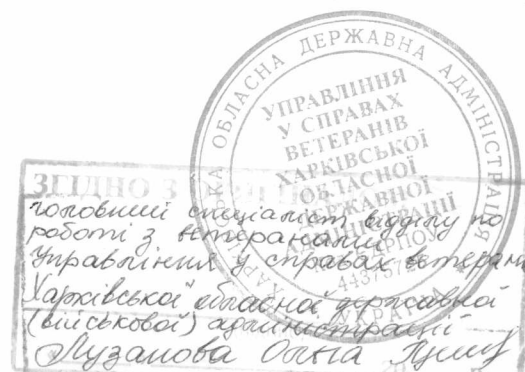 ХАРКІВСЬКА ОБЛАСНА ДЕРЖАВНА АДМІНІСТРАЦІЯ
УПРАВЛІННЯ
У СПРАВАХ
ВЕТЕРАНІВ
ХАРКІВСЬКОЇ
ОБЛАСНОЇ
ДЕРЖАВНОЇ
АДМІНІСТРАЦІЇ
УКРАЇНА
ЗГІДНО З
головний спеціаліст відділу по
роботі з ветеранами
Управління у справах ветерані
Харківської обласної державної
(військової) адміністрації